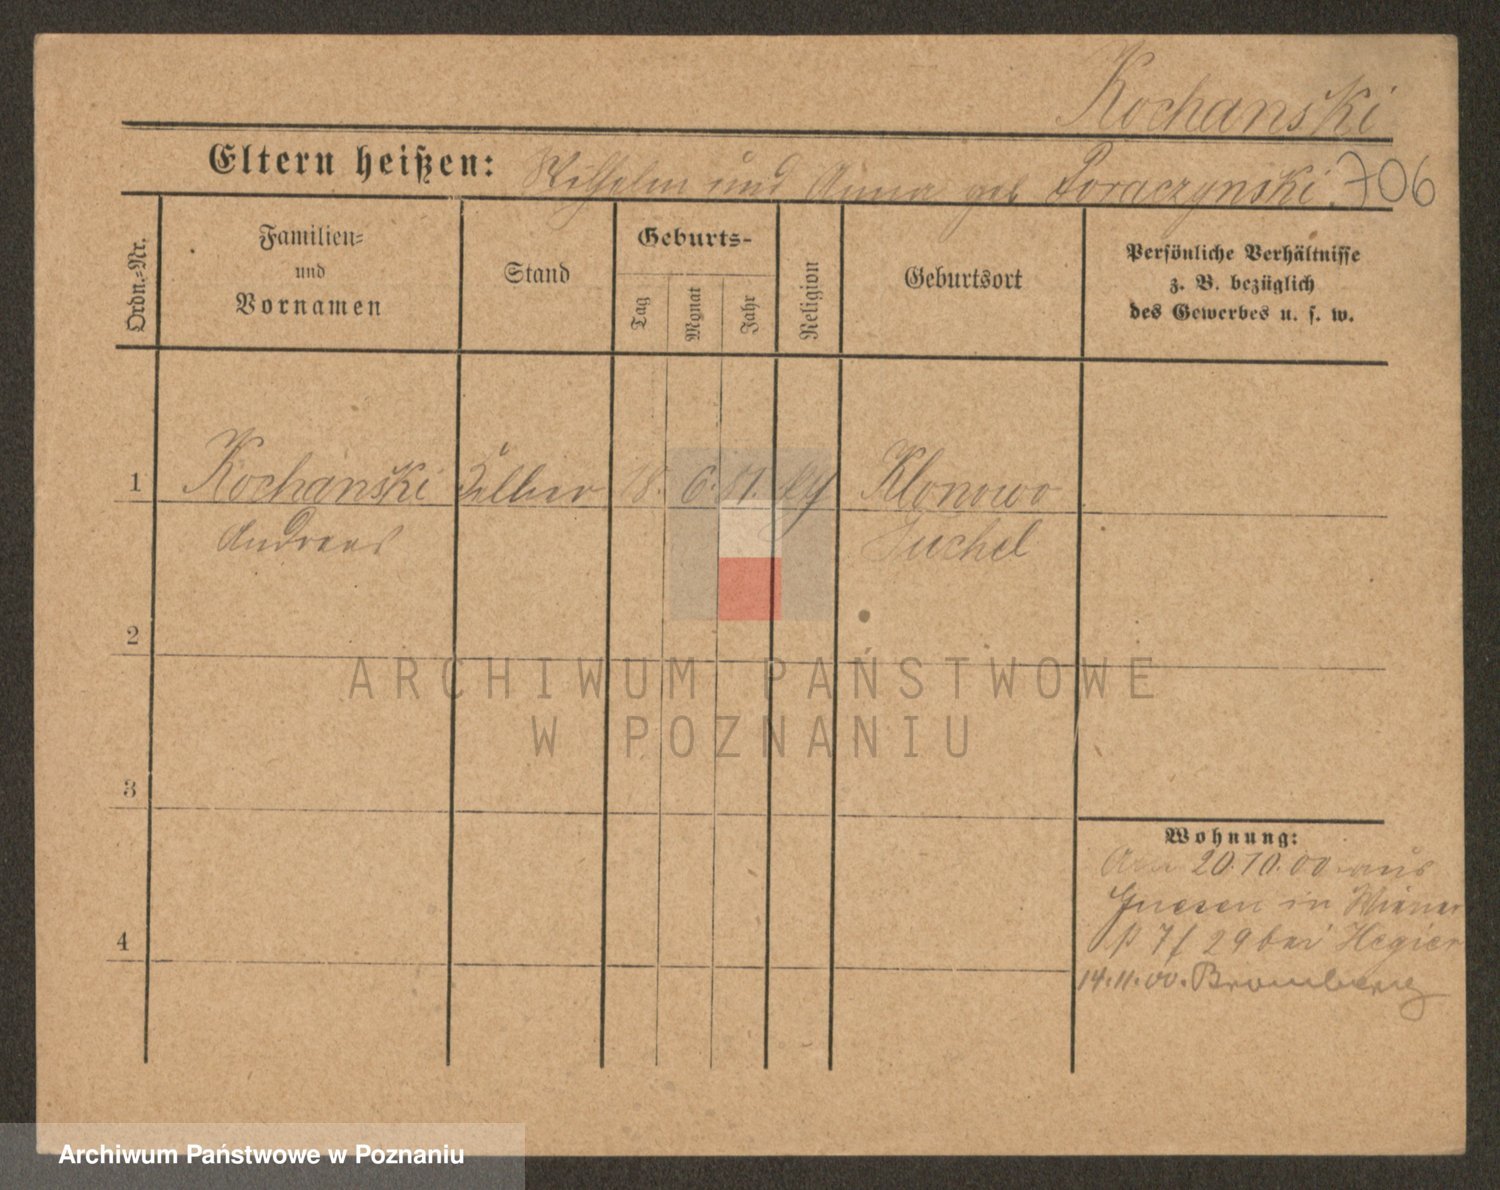 Kochanski
Eltern heißen: Wilhelm und Anna geb. Poraczynski. 706
Ordn.-Nr.
Familien-
und
Vornamen
Stand
Geburts-
Tag
Monat
Jahr
Religion
Geburtsort
Persönliche Verhältnisse
z. B. bezüglich
des Gewerbes u. s. w.
1 Kochanski Kellner 18. 6. 81. Klonowo
Andreas Tuchel
2
3
4
Wohnung:
20.10.00 aus
Gnesen in Wiener
7/29 bei Hegier
14.11.00. Bromberg
ARCHIWUM PAŃSTWOWE
W POZNANIU
Archiwum Państwowe w Poznaniu